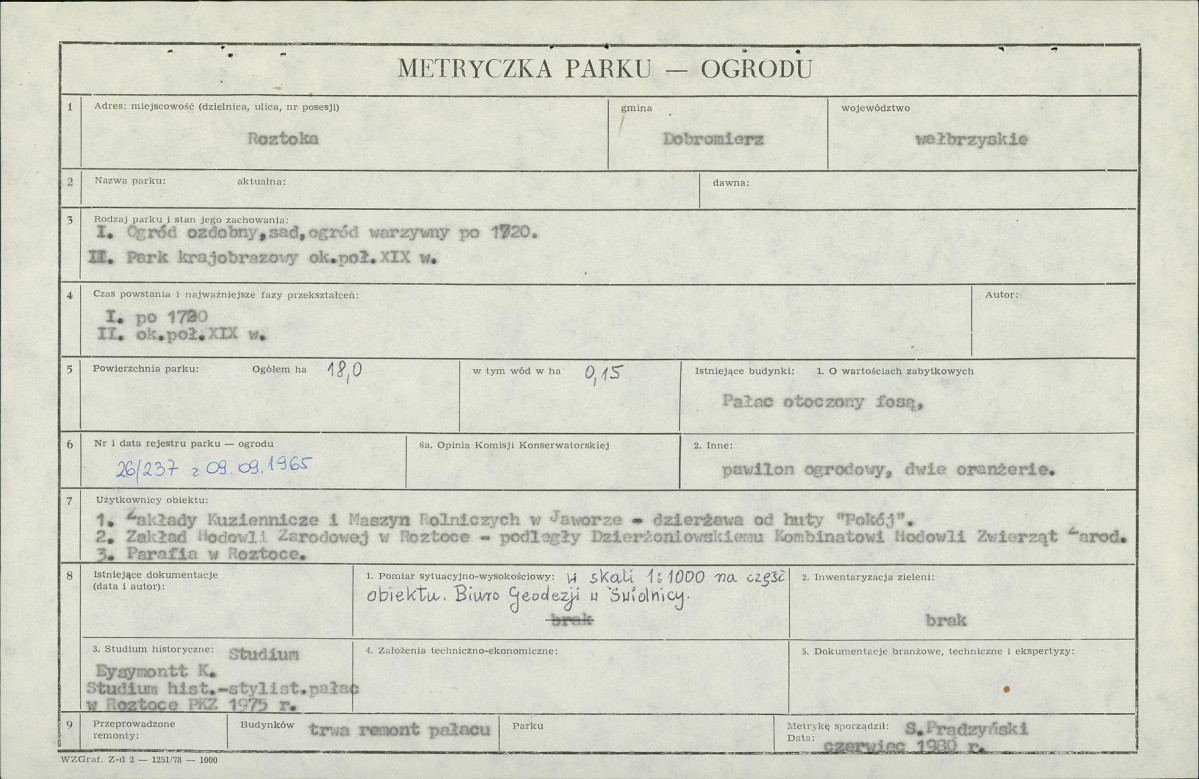 METRYCZKA PARKU — OGRODU
1 Adres: miejscowość (dzielnica, ulica, nr posesji) gmina województwo
Roztoka Dobromierz wałbrzyskie
2 Nazwa parku: aktualna: dawna:
3 Rodzaj parku i stan jego zachowania:
I. Ogród ozdobny,sad,ogród warzywny po 1720.
II. Park krajobrazowy ok.poł.XIX w.
4 Czas powstania i najważniejsze fazy przekształceń: Autor:
I. po 1720
II. ok.poł.XIX w.
5 Powierzchnia parku: Ogółem ha 18,0 w tym wód w ha 0,15 Istniejące budynki: 1. O wartościach zabytkowych
Pałac otoczony fosą,
6 Nr i data rejestru parku — ogrodu 6a. Opinia Komisji Konserwatorskiej 2. Inne:
26/237 z 09.09.1965 pawilon ogrodowy, dwie oranżerie.
7 Użytkownicy obiektu:
1. Zakłady Kuziennicze i Maszyn Rolniczych w Jaworze - dzierżawa od huty "Pokój".
2. Zakład Hodowli Zarodowej w Roztoce - podległy Dzierżoniowskiemu Kombinatowi Hodowli Zwierząt Zarod.
3. Parafia w Roztoce.
8 Istniejące dokumentacje 1. Pomiar sytuacyjno-wysokościowy: w skali 1:1000 na część 2. Inwentaryzacja zieleni:
(data i autor): obiektu. Biuro Geodezji w Świdnicy.
brak brak
3. Studium historyczne: Studium 4. Założenia techniczno-ekonomiczne: 5. Dokumentacje branżowe, techniczne i ekspertyzy:
Eysymontt K.
Studium hist.-stylist.pałac
w Roztoce PKZ 1975 r.
9 Przeprowadzone Budynków trwa remont pałacu Parku Metrykę sporządził: S.Prądzyński
remonty: Data: czerwiec 1980 r.
WZGraf. Z-d 2 — 1251/78 — 1000